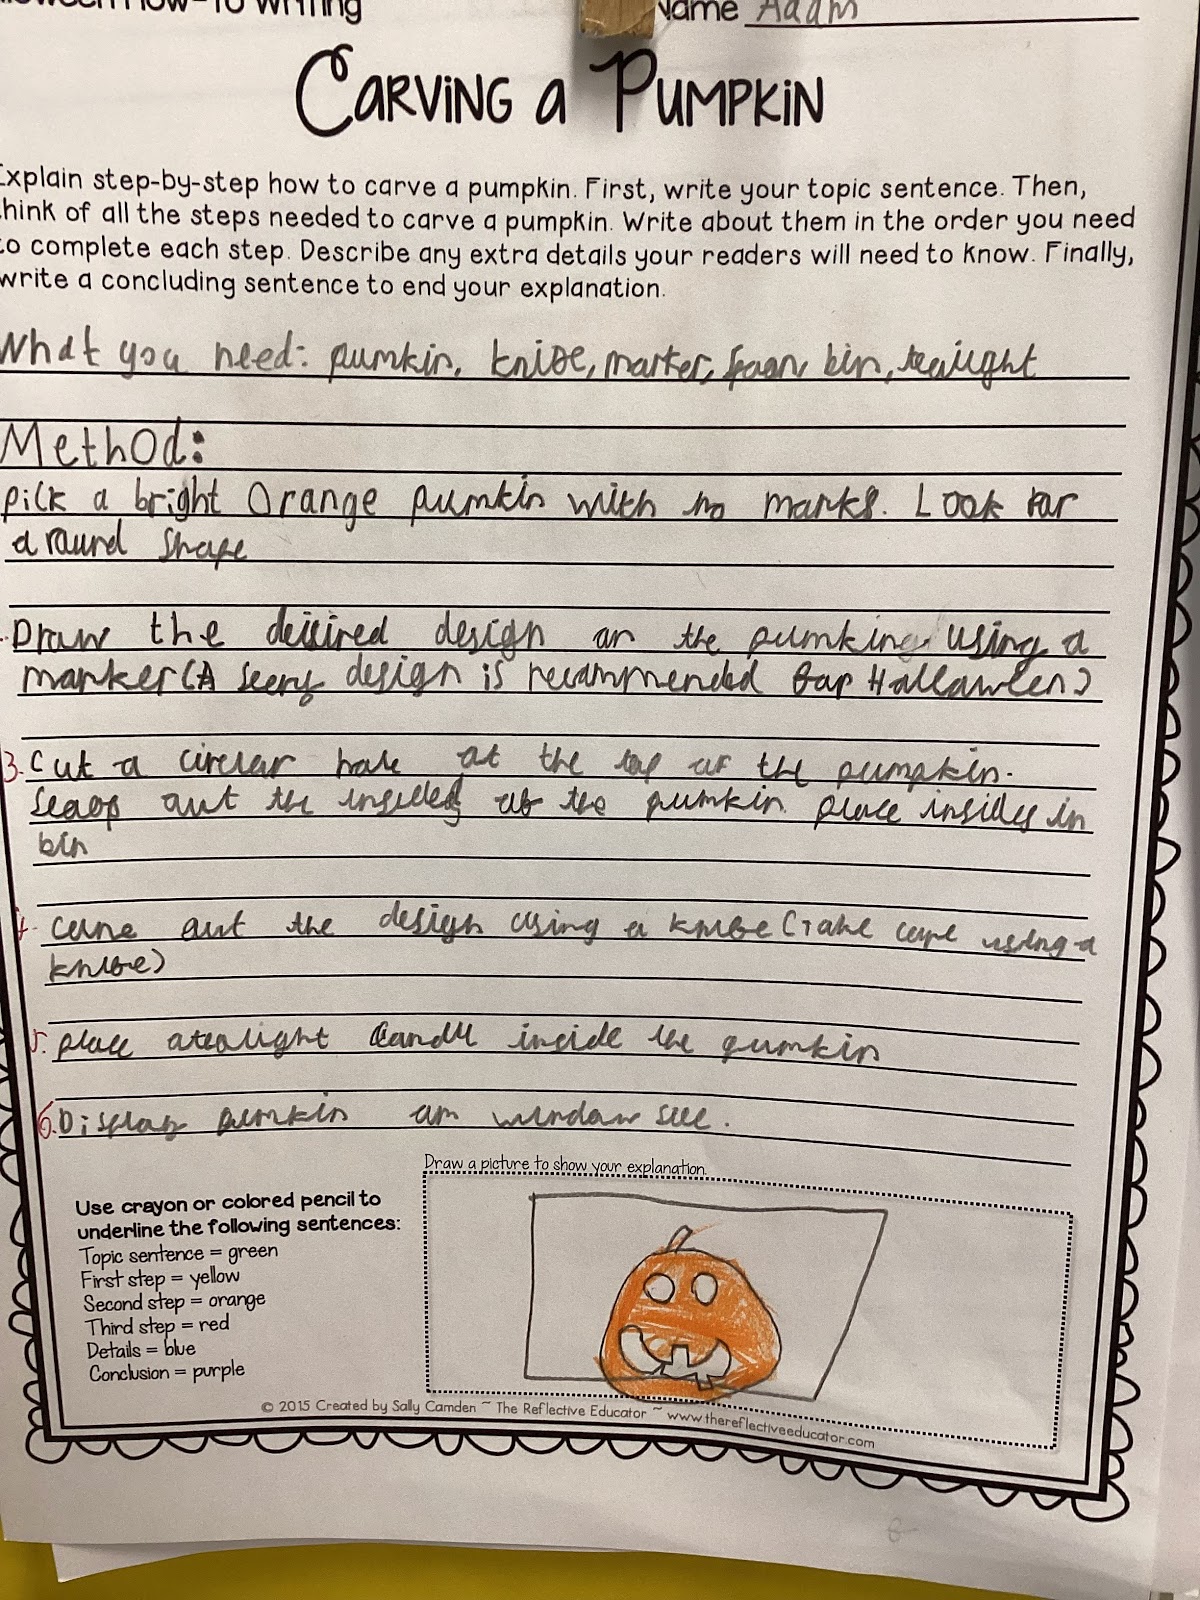 How-To Writing
Name Adam
CARVING a PUMPKIN
Explain step-by-step how to carve a pumpkin. First, write your topic sentence. Then,
think of all the steps needed to carve a pumpkin. Write about them in the order you need
to complete each step. Describe any extra details your readers will need to know. Finally,
write a concluding sentence to end your explanation.
What you need: pumkin, knife, marker, spoon, bin, tealight
Method:
pick a bright Orange pumkin with no marks. Look for
a round shape
Draw the desired design on the pumking using a
marker (A scery design is recommended for Halloween)
3. Cut a circular hole at the top of the pumpkin.
Scoop out the insides of the pumkin place insides in
bin
4. carve out the design using a knife (Take care using a
knife)
5. place a tealight Candle inside the pumkin
6. Display pumkin on window sill.
Draw a picture to show your explanation.
Use crayon or colored pencil to
underline the following sentences:
Topic sentence = green
First step = yellow
Second step = orange
Third step = red
Details = blue
Conclusion = purple
© 2015 Created by Sally Camden ~ The Reflective Educator ~ www.thereflectiveeducator.com